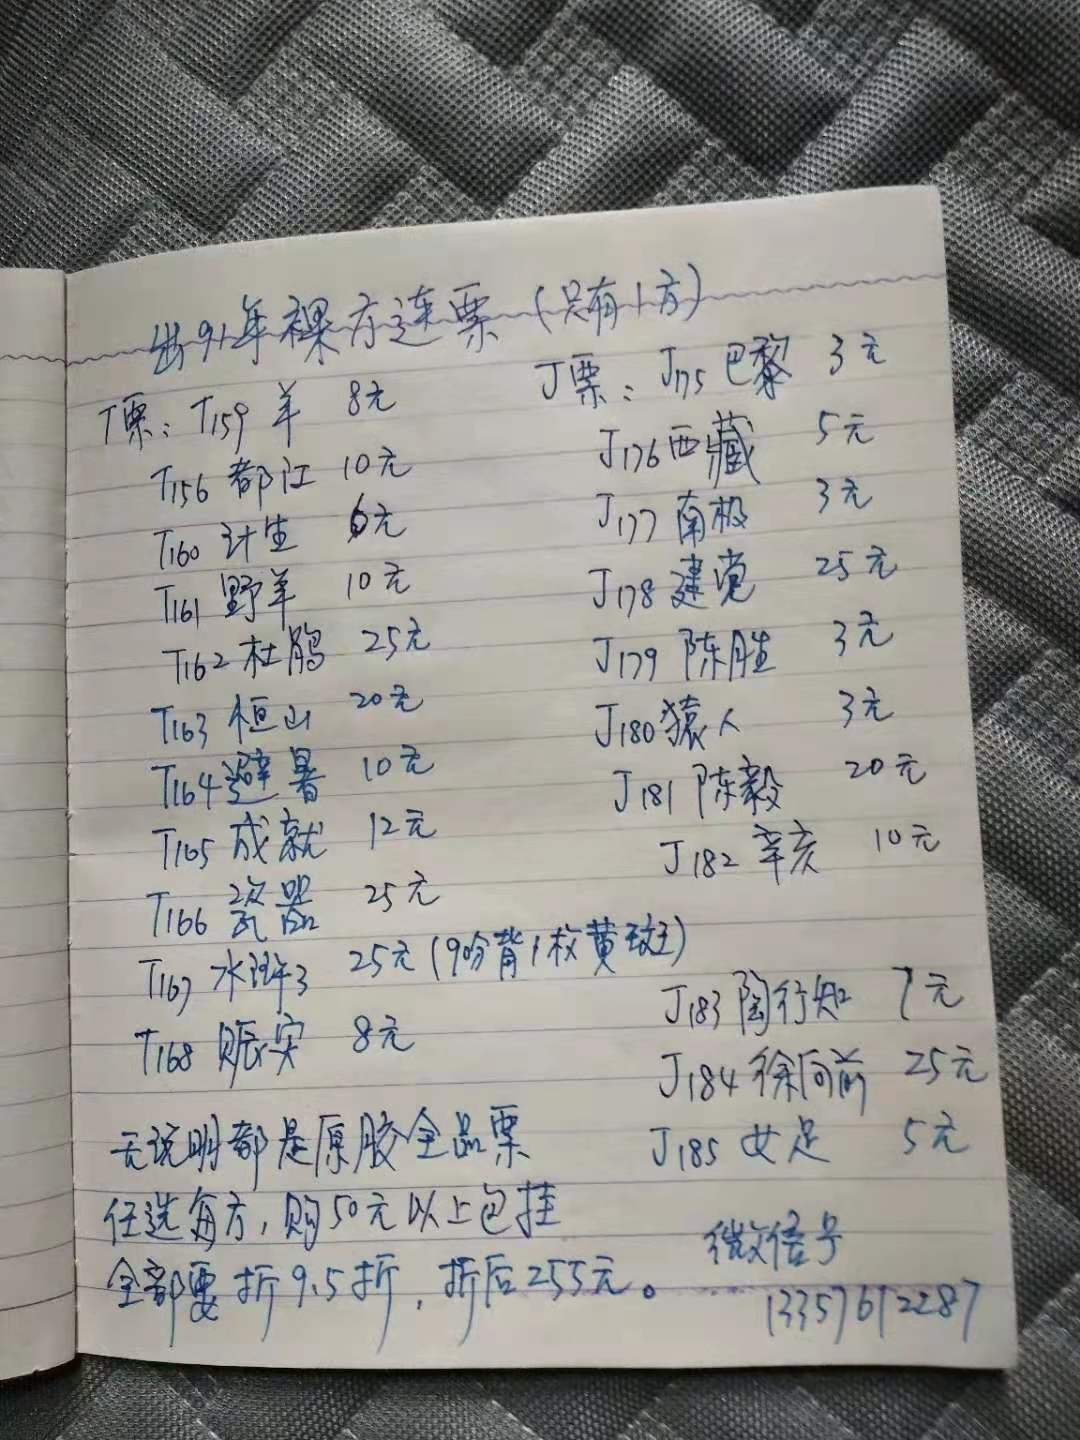 出91年裸方连票(只有1方)
T票：T159 羊 8元
T156 都江 10元
T160 计生 6元
T161 野羊 10元
T162 杜鹃 25元
T163 恒山 20元
T164 避暑 10元
T165 成就 12元
T166 瓷器 25元
T167 水浒3 25元(9吩背1枚黄斑)
T168 赈灾 8元
J票：J175 巴黎 3元
J176 西藏 5元
J177 南极 3元
J178 建党 25元
J179 陈胜 3元
J180 猿人 3元
J181 陈毅 20元
J182 辛亥 10元
J183 陶行知 7元
J184 徐向前 25元
J185 女足 5元
无说明都是原胶全品票
任选每方，购50元以上包挂
全部要折9.5折，折后255元。
微信号
13357612287